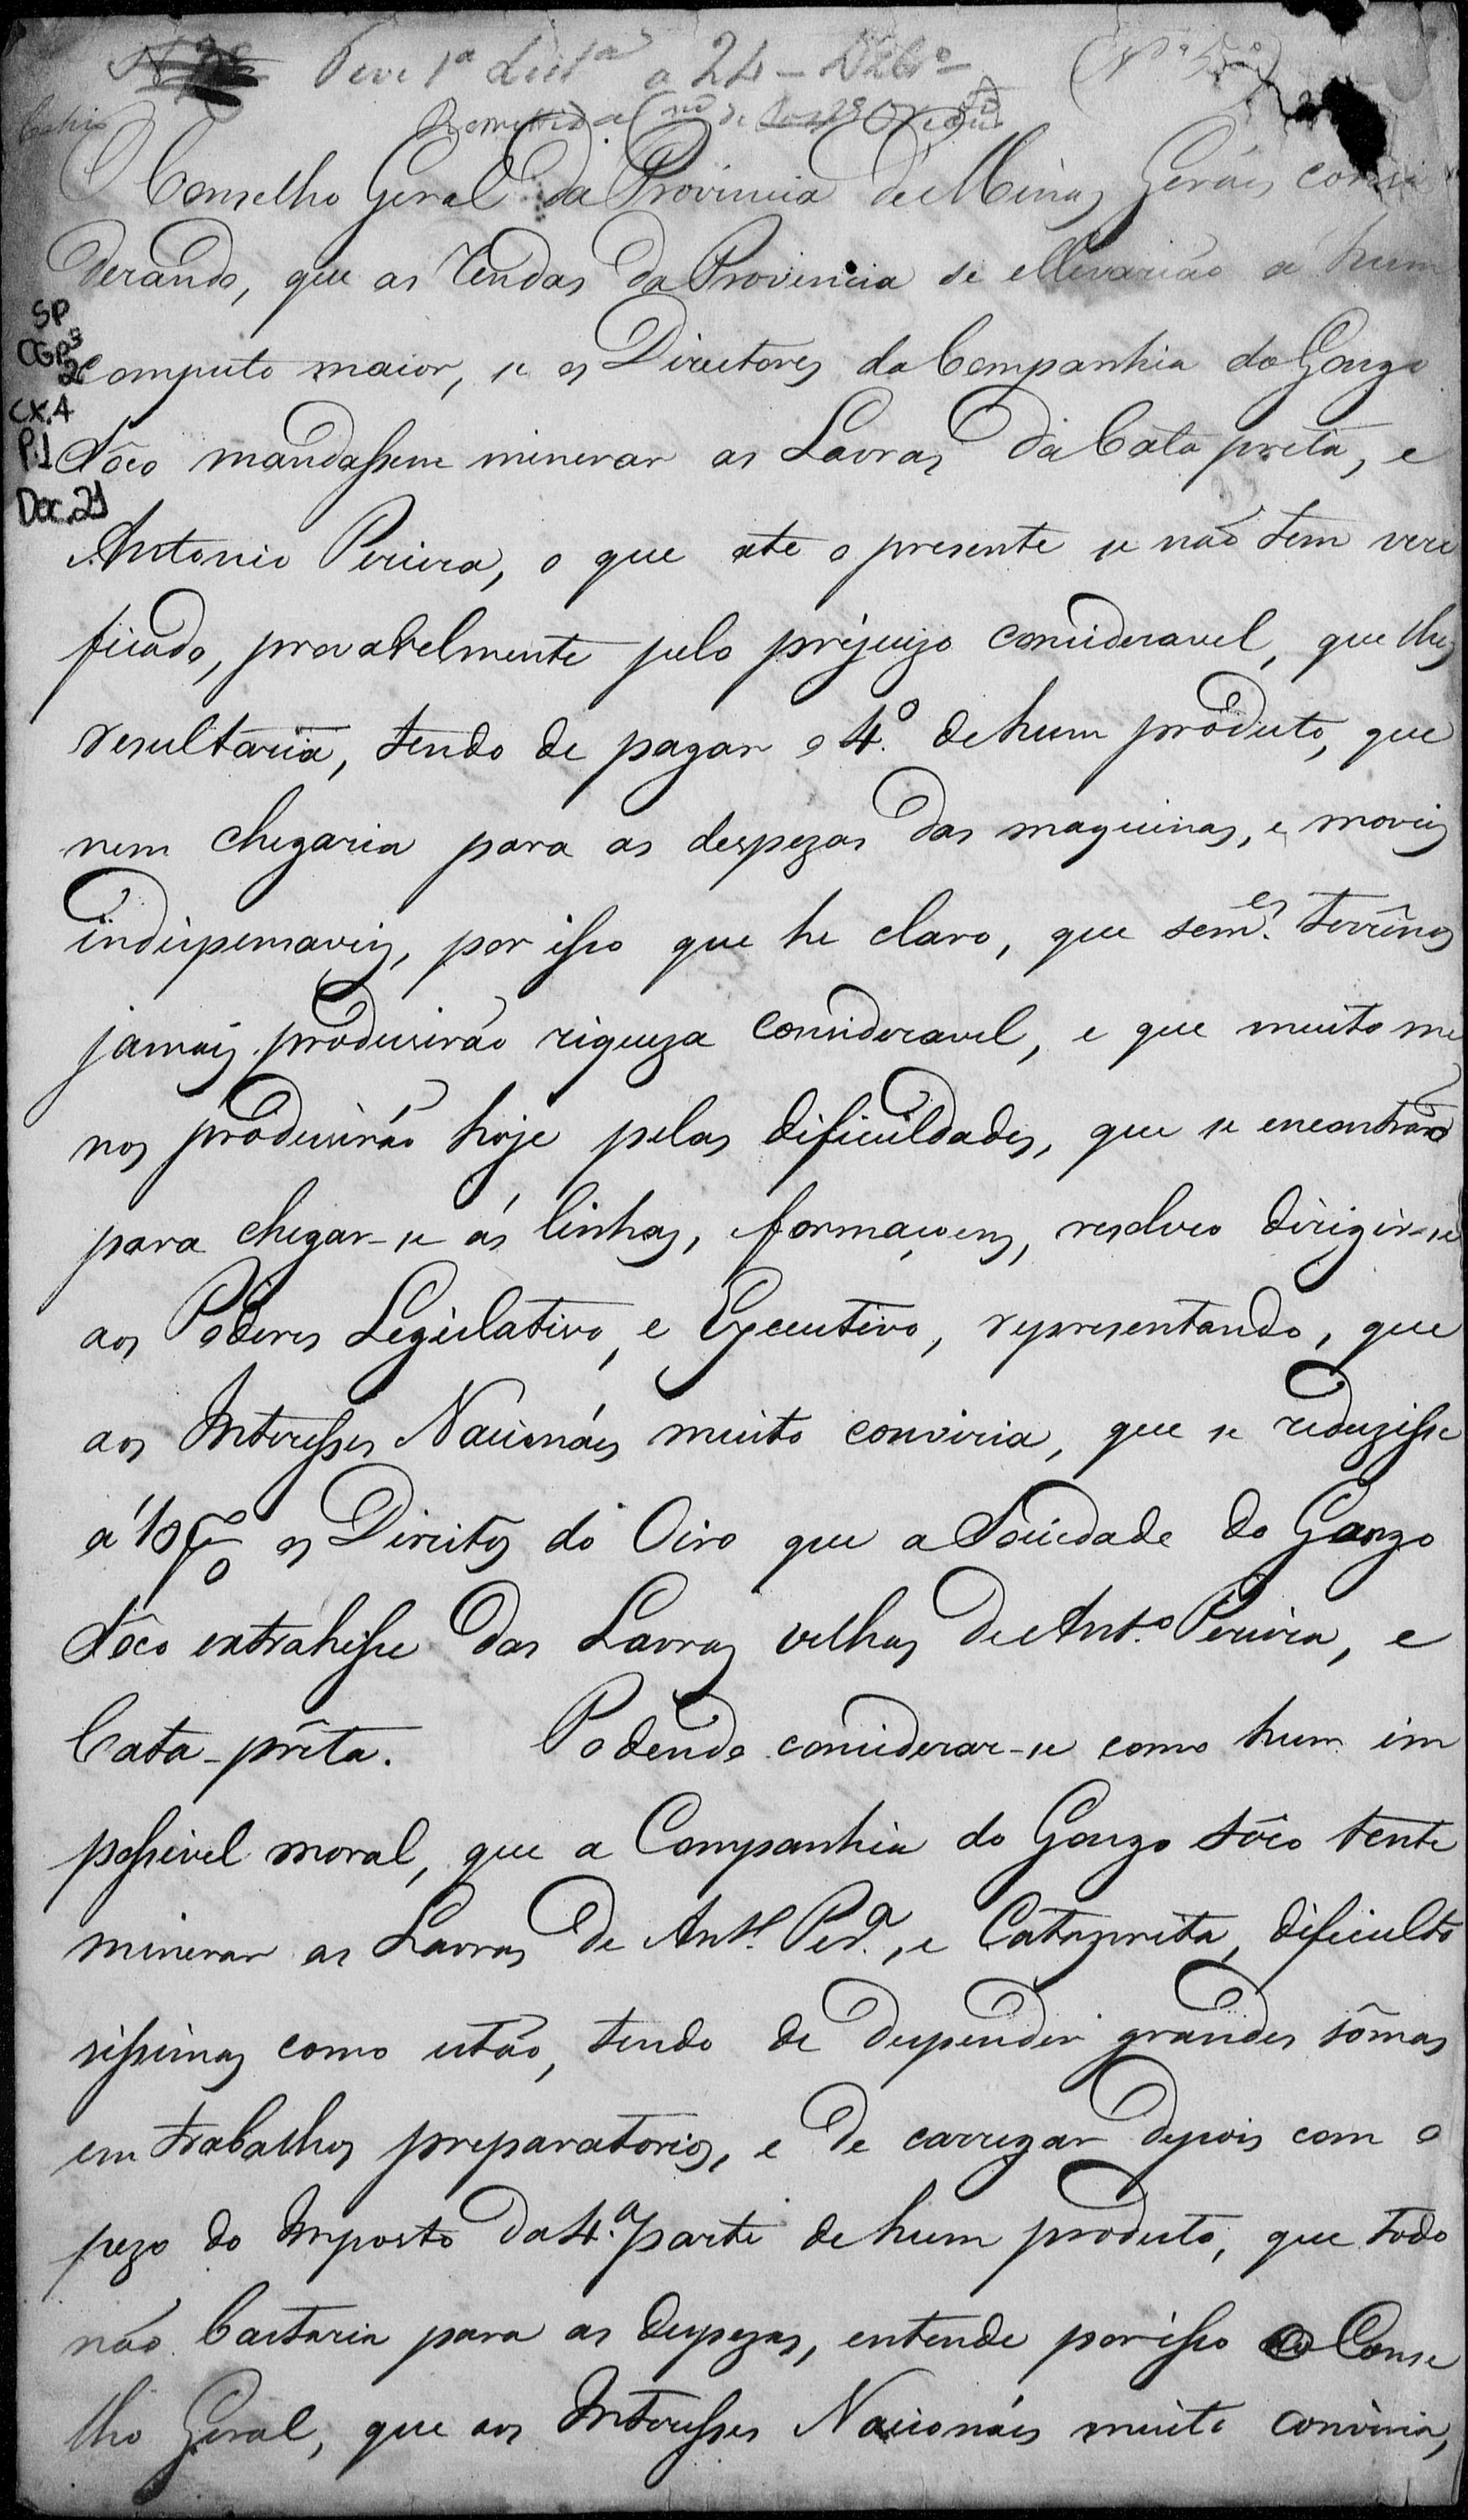 Teve 1ª Leitª a 24 - Dzbrº
Remettida
O Conselho Geral da Provincia de Minas Geráes consi
derando, que as rendas da Provincia se ellevarião a hum
SP
CGP3
computo maior, se os Directores da Companhia do Gongo
CX.4
P.1
Sôco mandassem minerar as Lavras da Cata preta, e
Doc.21
Antonio Pereira, o que ate o presente se não tem veri
ficado, provavelmente pelo prejuizo consideravel, que lhes
resultaria, tendo de pagar o 4º de hum produto, que
nem chegaria para as despezas das maquinas, e moveis
indispensaveis, por isso que he claro, que sem.es terrênos
jamais produsirão riqueza consideravel, e que muito me
nos produsirão hoje pelas dificuldades, que se encontrão
para chegar-se ás linhas, e formaçoens, resolveo dirigir-se
aos Poderes Legislativo, e Executivo, representando, que
aos Interesses Nacionáes muito conviria, que se reduzisse
a 10 % os Direitos do Oiro que a Sociedade do Gongo
Sôco extrahisse das Lavras velhas de Antº Pereira, e
Cata-prêta. Podendo considerar-se como hum im
possivel moral, que a Companhia do Gongo sôco tente
minerar as Lavras de Antº Perª, e Catapreta, dificulto
sissimas como estão, tendo de despender grandes sômas
em trabalhos preparatorios, e de carregar depois com o
pezo do Imposto da 4ª parte de hum produto, que todo
não bastaria para as despezas, entende por isso o Conse
lho Geral, que aos Interesses Nacionáes muito conviria,